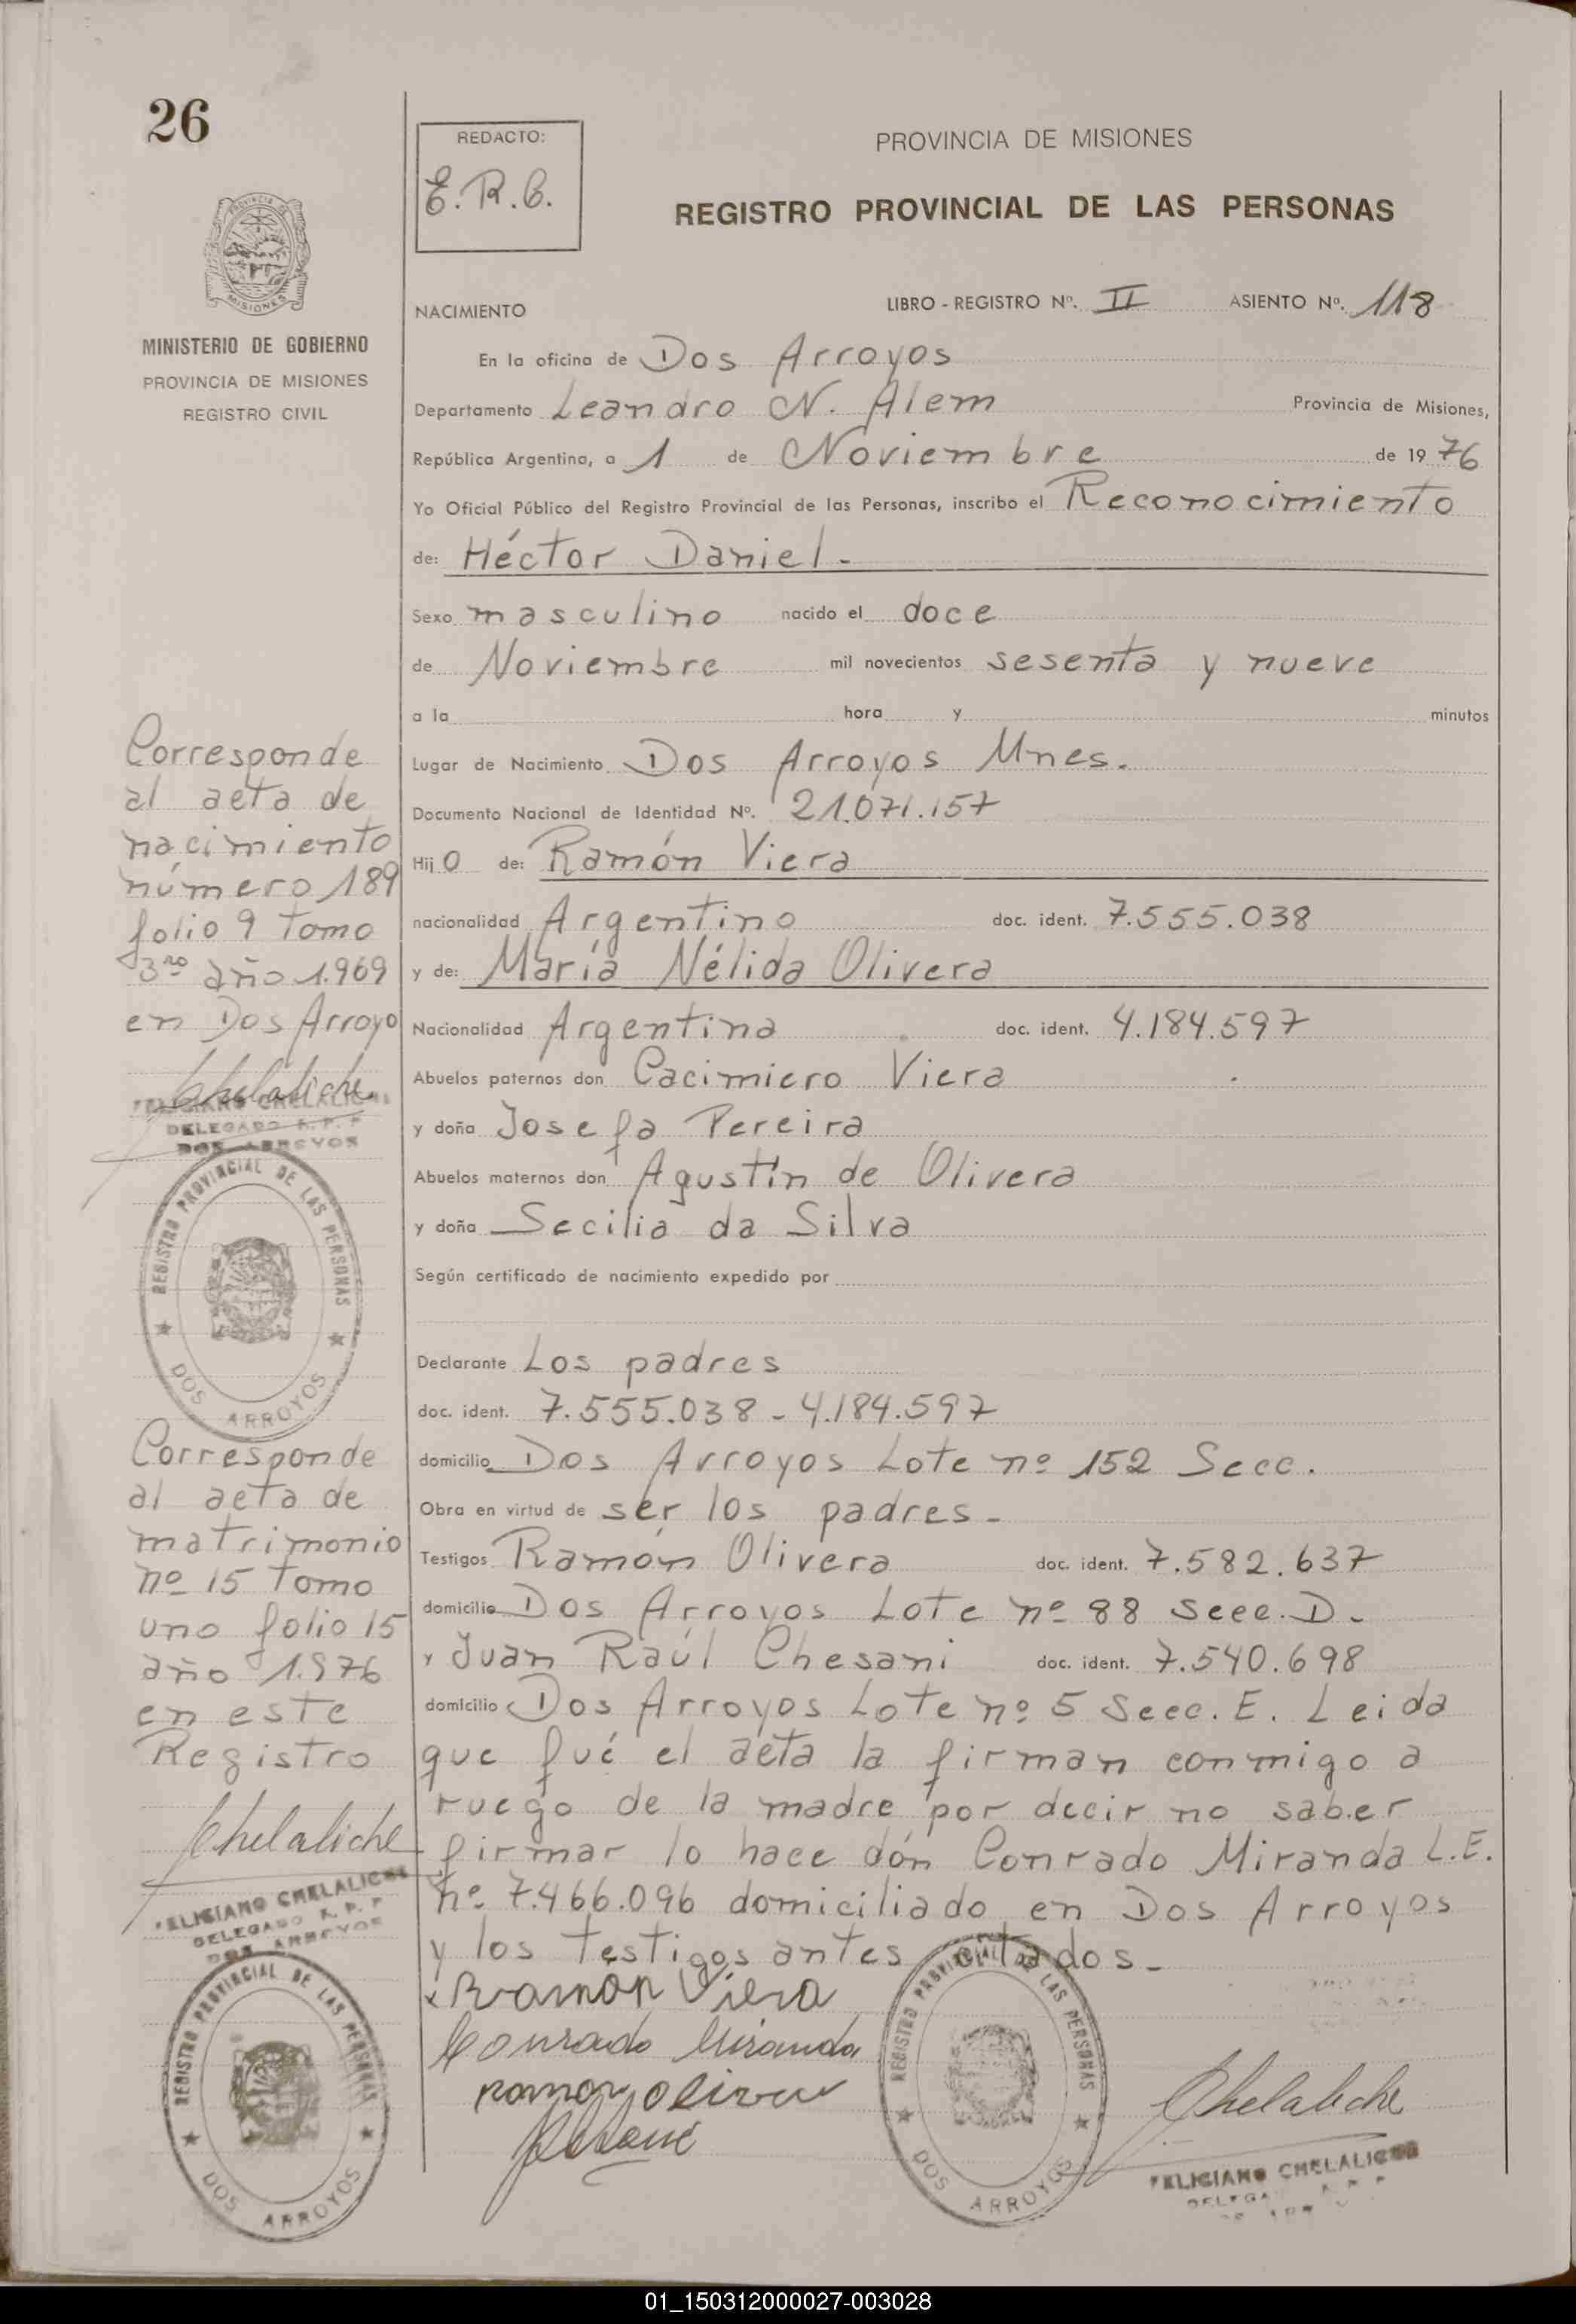 26
REDACTO:
E.R.C.
PROVINCIA DE MISIONES
REGISTRO PROVINCIAL DE LAS PERSONAS
MISIONES
MINISTERIO DE GOBIERNO
PROVINCIA DE MISIONES
REGISTRO CIVIL
NACIMIENTO LIBRO - REGISTRO Nº. II ASIENTO Nº. 118
En la oficina de Dos Arroyos
Departamento Leandro N. Alem Provincia de Misiones,
República Argentina, a 1 de Noviembre de 1976
Yo Oficial Público del Registro Provincial de las Personas, inscribo el Reconocimiento
de: Héctor Daniel.-
Sexo masculino nacido el doce
de Noviembre mil novecientos sesenta y nueve
a la hora y minutos
Lugar de Nacimiento Dos Arroyos Mnes.
Documento Nacional de Identidad Nº. 21.071.157
Hijo de: Ramón Viera
nacionalidad Argentino doc. ident. 7.555.038
y de: María Nélida Olivera
Nacionalidad Argentina doc. ident. 4.184.597
Abuelos paternos don Cacimiero Viera
y doña Josefa Pereira
Abuelos maternos don Agustín de Olivera
y doña Secilia da Silva
Según certificado de nacimiento expedido por
Declarante Los padres
doc. ident. 7.555.038 - 4.184.597
domicilio Dos Arroyos Lote nº 152 Secc.
Obra en virtud de ser los padres-
Testigos Ramón Olivera doc. ident. 7.582.637
domicilio Dos Arroyos Lote nº 88 Secc. D.
y Juan Raúl Chesani doc. ident. 7.540.698
domicilio Dos Arroyos Lote nº 5 Secc. E. Leida
que fué el acta la firman conmigo a
ruego de la madre por decir no saber
firmar lo hace dón Conrado Miranda L.E.
nº 7.466.096 domiciliado en Dos Arroyos
y los testigos antes citados-
x Ramón Viera
Conrado Miranda
Ramon Olivera
Chelaliche
FELICIANO CHELALICHE
REGISTRO PROVINCIAL DE LAS PERSONAS
DOS ARROYOS
Corresponde
al acta de
nacimiento
número 189
folio 9 tomo
3ro año 1.969
en Dos Arroyo
Chelaliche
FELICIANO CHELALICHE
DELEGADO R. P. P
DOS ARROYOS
REGISTRO PROVINCIAL DE LAS PERSONAS
DOS ARROYOS
Corresponde
al acta de
matrimonio
nº 15 tomo
uno folio 15
año 1.976
en este
Registro
Chelaliche
FELICIANO CHELALICHE
DELEGADO R. P. P
DOS ARROYOS
REGISTRO PROVINCIAL DE LAS PERSONAS
DOS ARROYOS
01_150312000027-003028